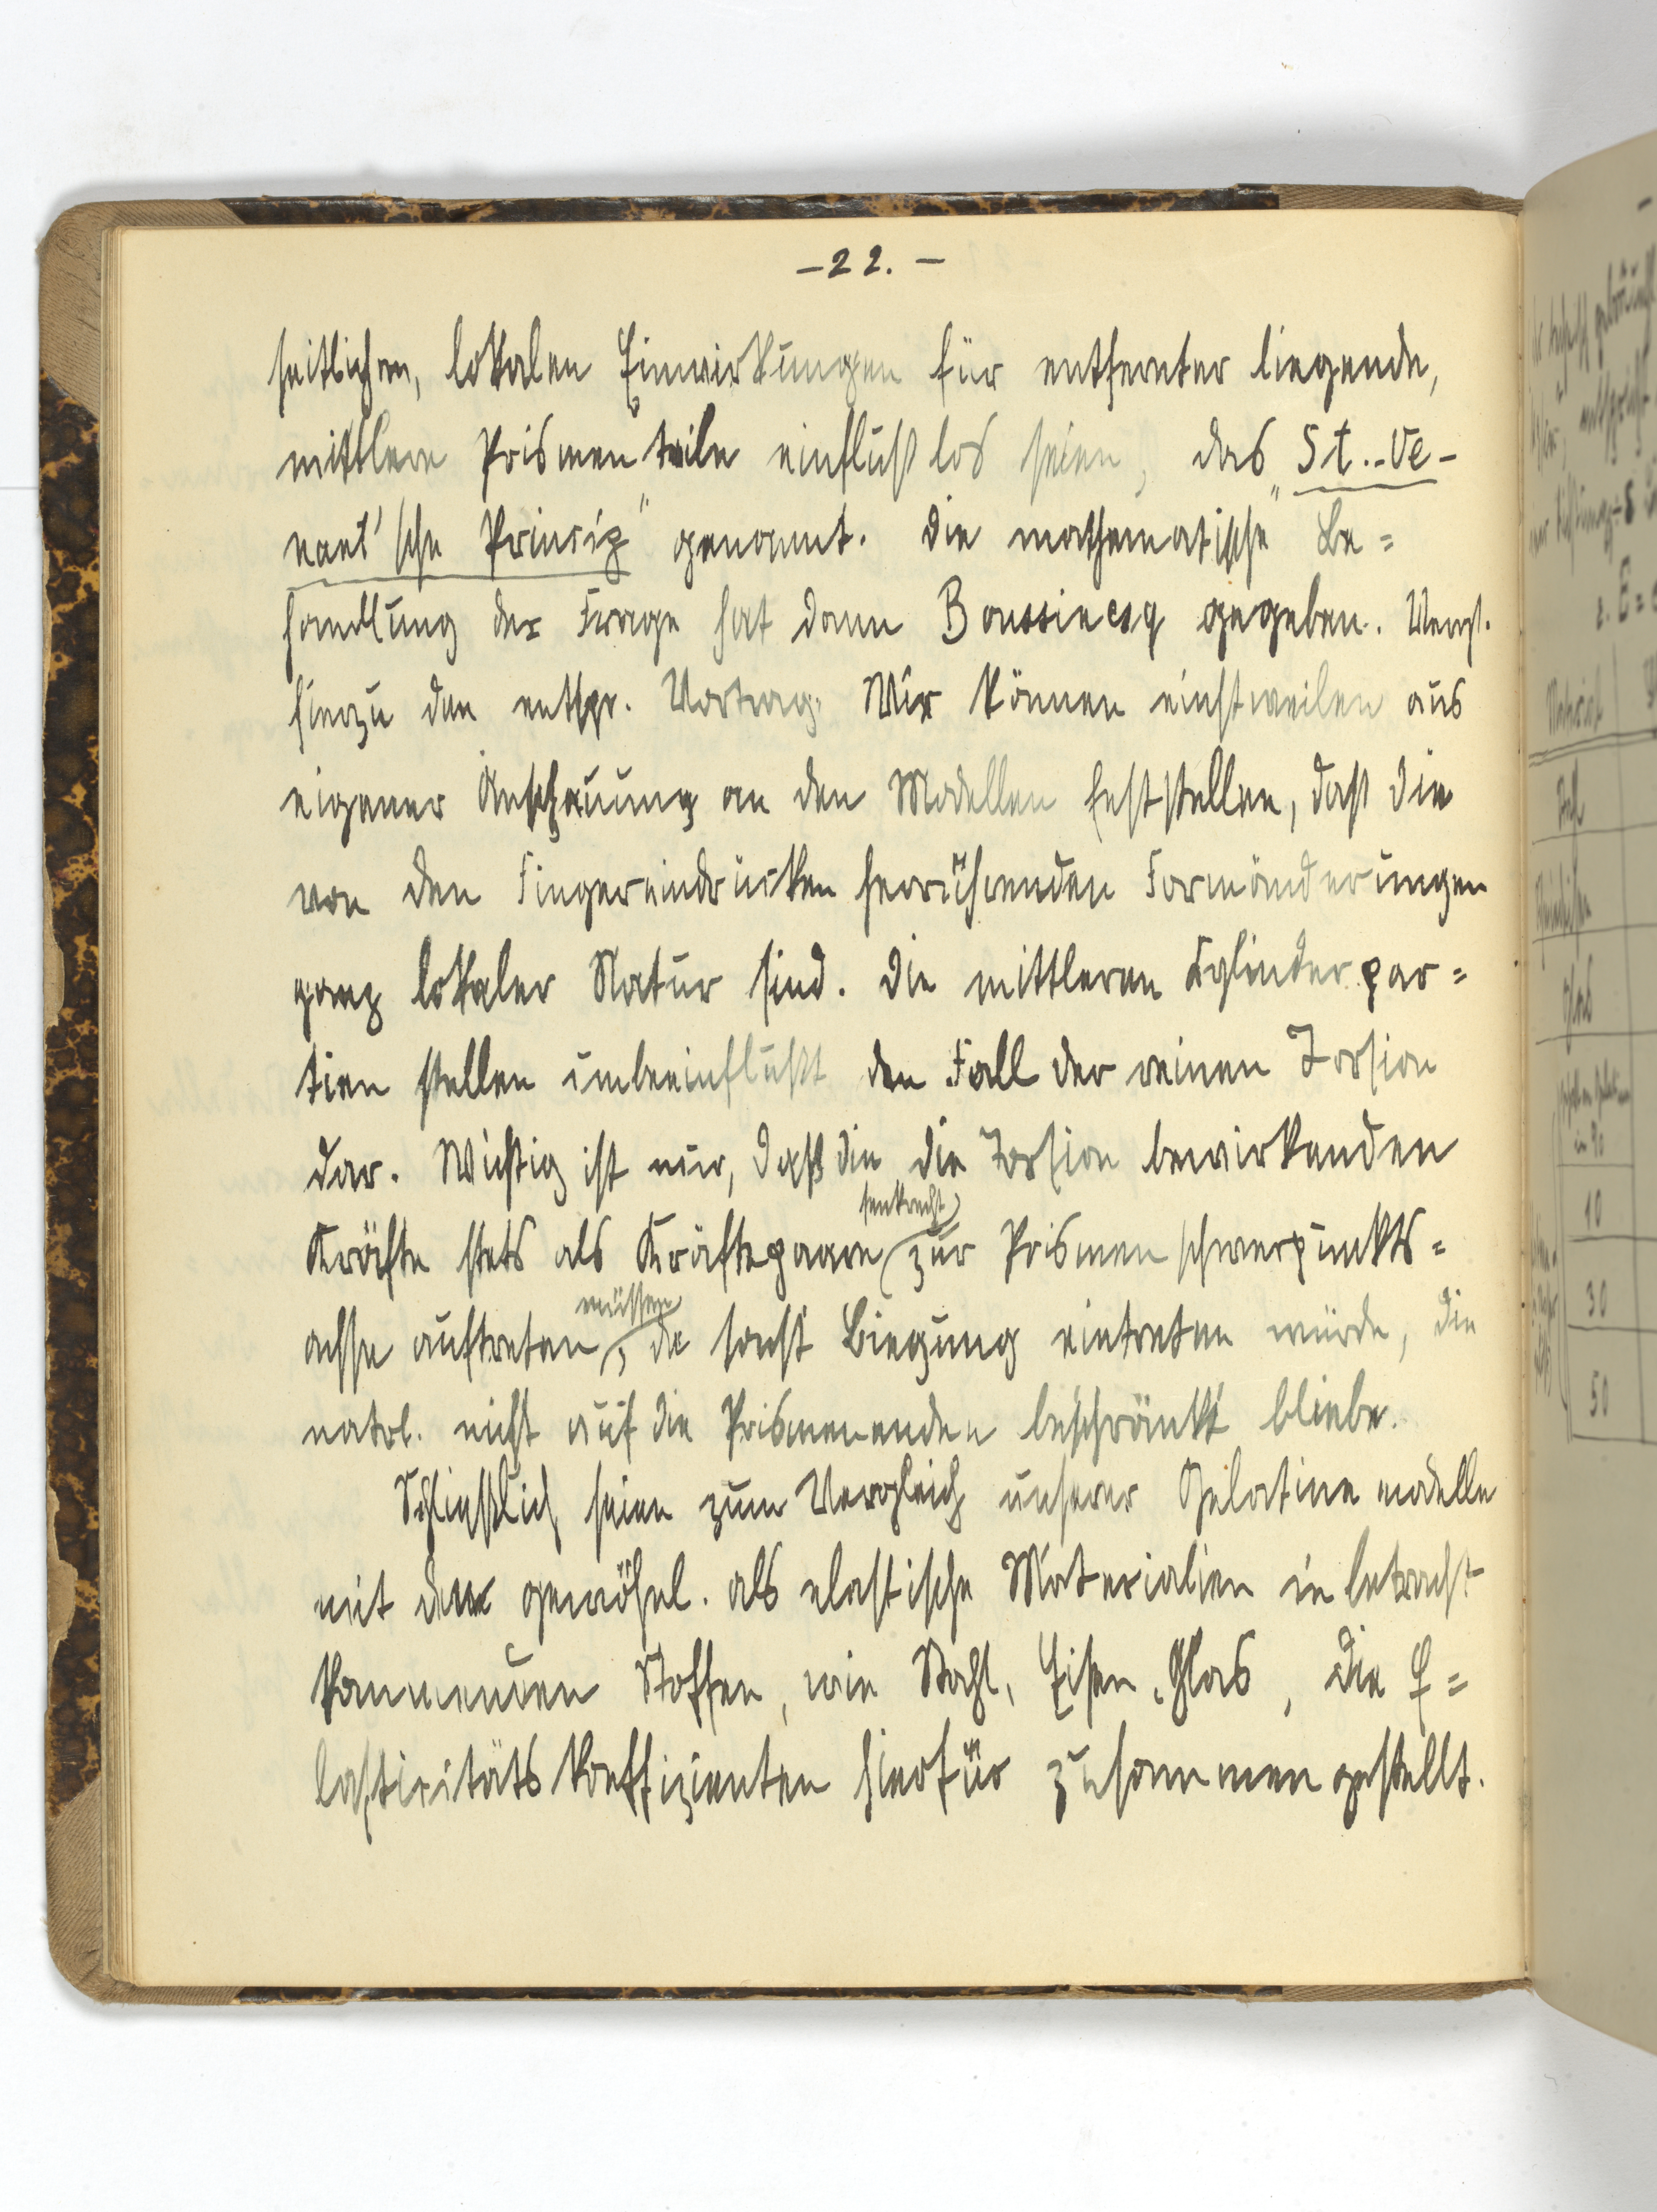 -22.-
seitlichen, lokalen Einwirkungen für entfernter liegende,
mittlere Prismenteile einflußlos seien, das „St.-Ve-
nant'sche Princip" genannt. Die mathematische Be=
handlung der Frage hat dann Boussinesq gegeben. Vergl.
hierzu den entspr. Vortrag. Wir können einstweilen aus
eigener Anschauung an den Modellen feststellen, daß die
von den Fingereindrücken herrührenden Formänderungen
ganz lokaler Natur sind. Die mittleren Cylinderpar=
tien stellen unbeeinflußt den Fall der reinen Torsion
dar. Wichtig ist nur, daß die die Torsion bewirkenden
senkrecht
Kräfte stets als Kräftepaare zur Prismenschwerpunkts=
müssen
achse auftreten, da sonst Biegung eintreten würde, die
natrl. nicht auf die Prismenenden beschränkt bliebe.
Schließlich seien zum Vergleich unserer Gelatinemodelle
mit den gewöhnl. als elastische Materialien in betracht
kommenden Stoffen, wie Stahl, Eisen, Glas, die E=
lasticitätskoeffizienten hierfür zusammengestellt.
Material
Stahl
Glas
10
30
50